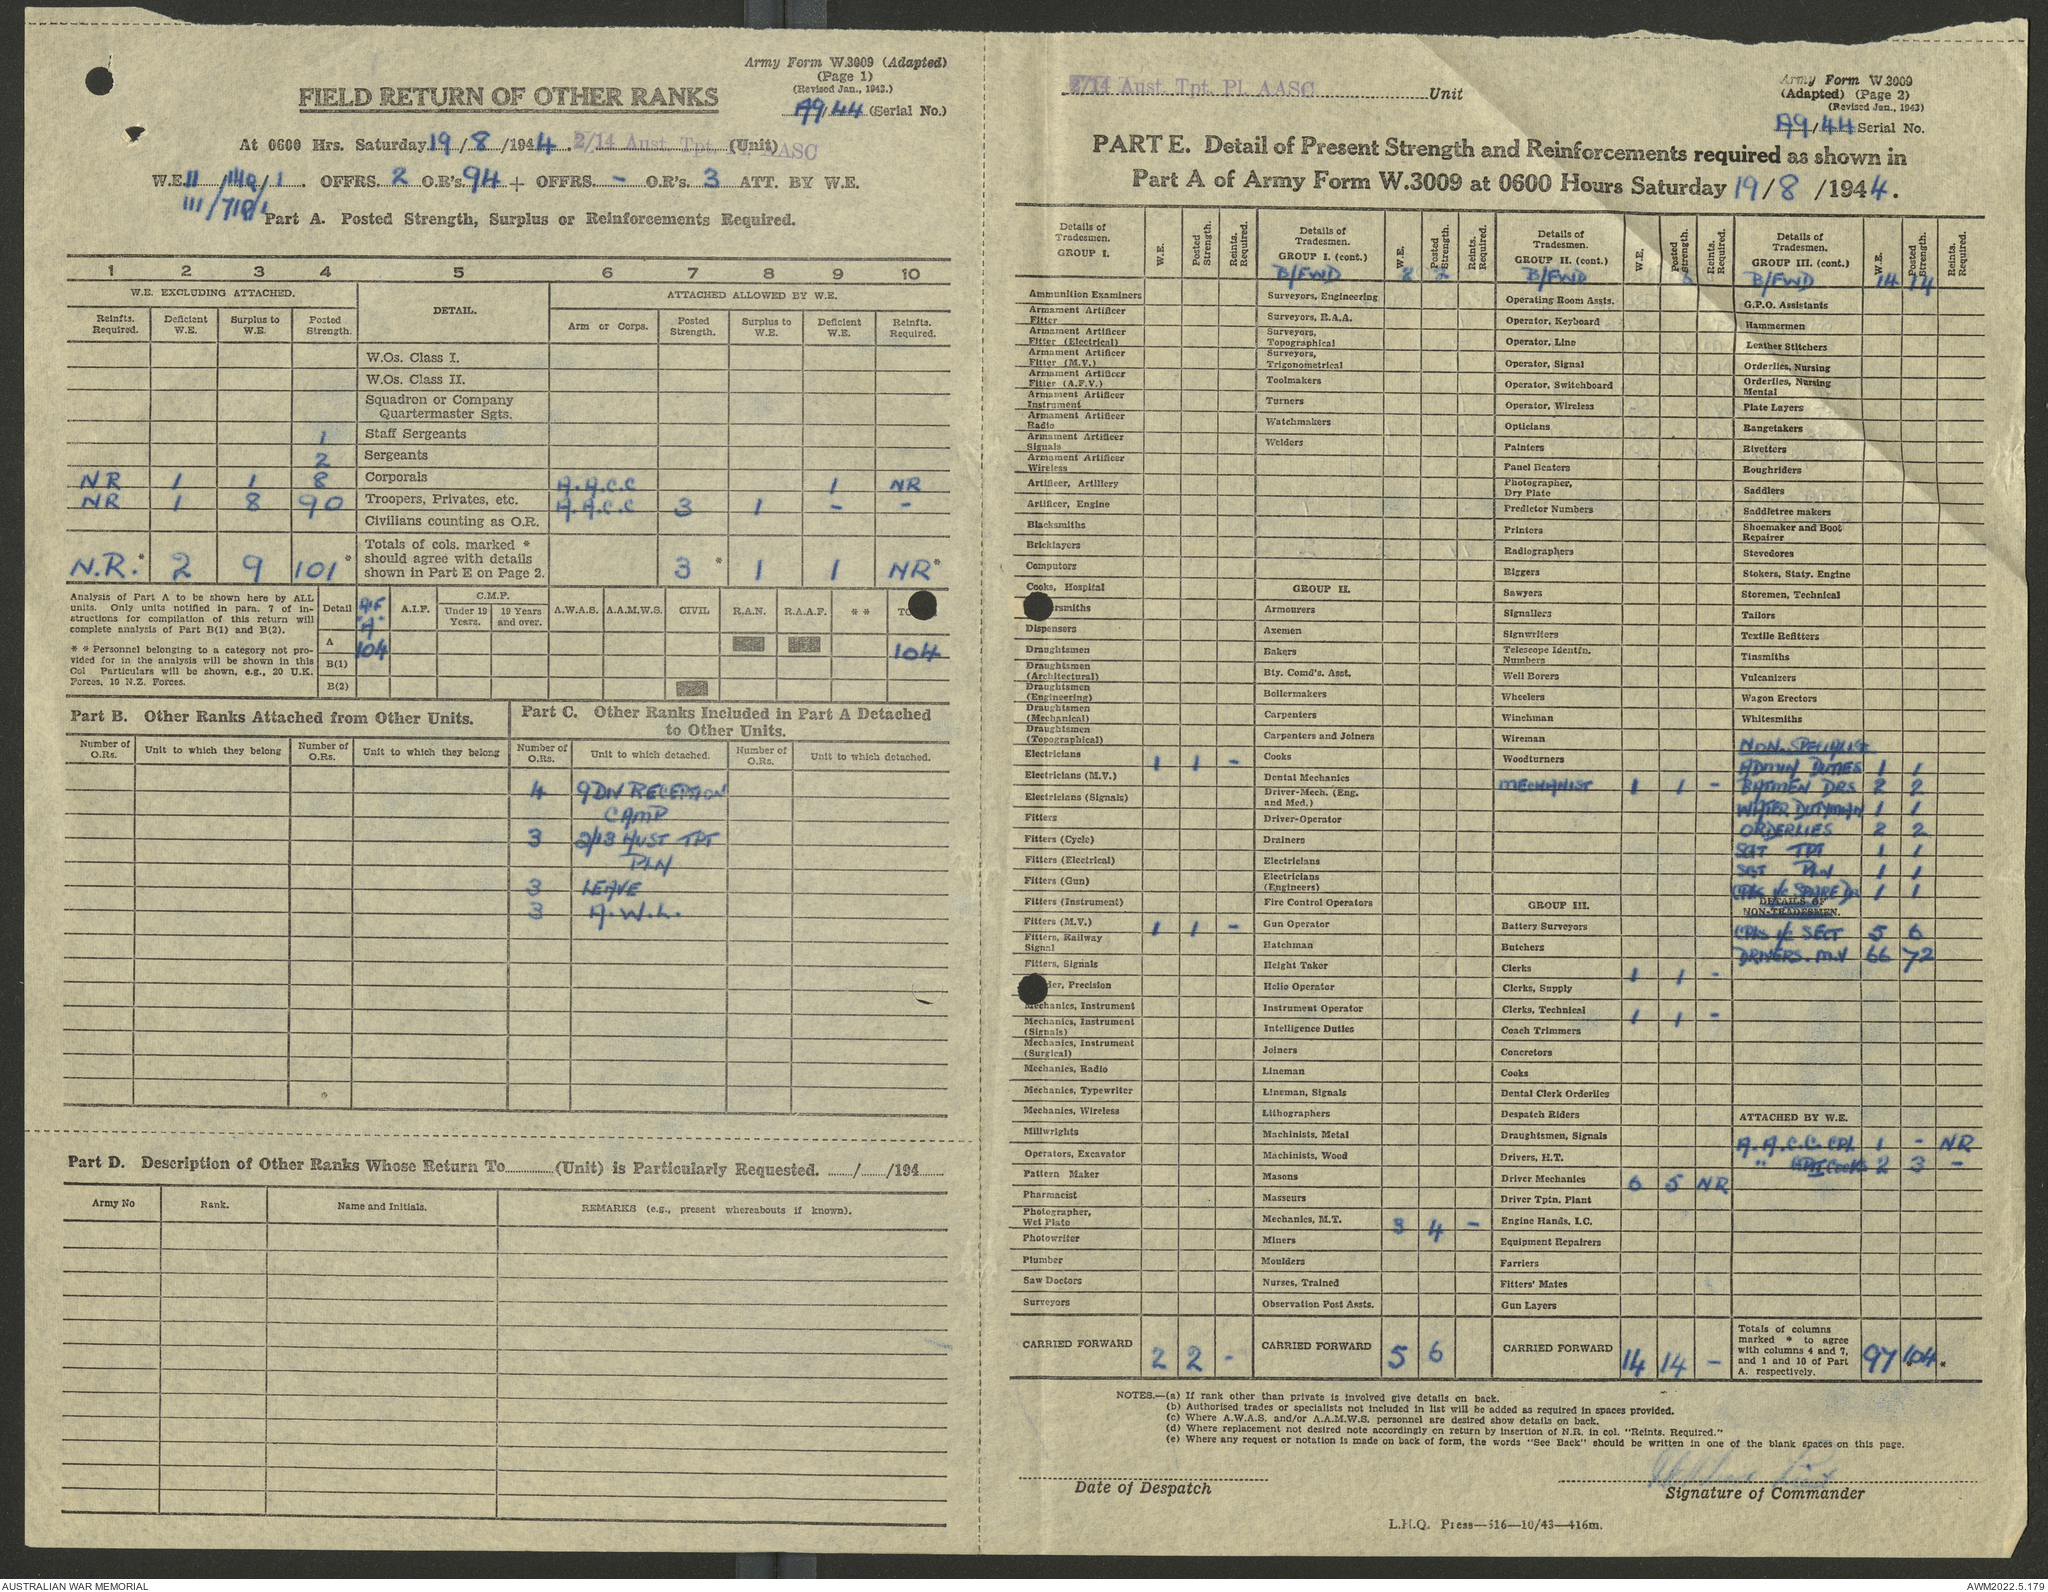 Army Form W.3009 (Adapted)
(Page 1)
(Revised Jan., 1943.)
FIELD RETURN OF OTHER RANKS
A9/44 (Serial No.)
At 0600 Hrs. Saturday 19/8/1944. 2/14 Aust. Tpt. (Unit) AASC
W.E. 11/140/1. OFFRS. 2 O.R's. 94 + OFFRS. - O.R's. 3 ATT. BY W.E.
Part A. Posted Strength, Surplus or Reinforcements Required.
1 2 3 4 5 6 7 8 9 10
W.E. EXCLUDING ATTACHED. DETAIL. ATTACHED ALLOWED BY W.E.
Reinfts. Required. Deficient W.E. Surplus to W.E. Posted Strength. Arm or Corps. Posted Strength. Surplus to W.E. Deficient W.E. Reinfts. Required.
W.Os. Class I.
W.Os. Class II.
Squadron or Company
Quartermaster Sgts.
1 Staff Sergeants
2 Sergeants
NR 1 1 8 Corporals A.A.C.C 1 NR
NR 1 8 90 Troopers, Privates, etc. A.A.C.C 3 1 - -
Civilians counting as O.R.
N.R.* 2 9 101* Totals of cols. marked * should agree with details shown in Part E on Page 2. 3* 1 1 NR*
Analysis of Part A to be shown here by ALL
units. Only units notified in para. 7 of in-
structions for compilation of this return will
complete analysis of Part B(1) and B(2).
* * Personnel belonging to a category not pro-
vided for in the analysis will be shown in this
Col Particulars will be shown, e.g., 20 U.K.
Forces, 16 N.Z. Forces.
Detail A.I.F. C.M.F. Under 19 Years. 19 Years and over. A.W.A.S. A.A.M.W.S. CIVIL R.A.N. R.A.A.F. * *
A 104 104
B(1)
B(2)
Part B. Other Ranks Attached from Other Units.
Number of O.Rs. Unit to which they belong Number of O.Rs. Unit to which they belong
Part C. Other Ranks Included in Part A Detached
to Other Units.
Number of O.Rs. Unit to which detached. Number of O.Rs. Unit to which detached.
4 9 DIV RECEPTION
CAMP
3 2/13 AUST TPT
PLN
3 LEAVE
3 A.W.L.
Part D. Description of Other Ranks Whose Return To (Unit) is Particularly Requested. / /194
Army No Rank. Name and Initials. REMARKS (e.g., present whereabouts if known).
2/14 Aust. Tpt. Pl. AASC Unit
Army Form W.3009
(Adapted) (Page 2)
(Revised Jan., 1943)
A9/44 Serial No.
PART E. Detail of Present Strength and Reinforcements required as shown in
Part A of Army Form W.3009 at 0600 Hours Saturday 19/8/1944.
Details of Tradesmen. GROUP I. W.E. Posted Strength. Reints. Required.
Ammunition Examiners
Armament Artificer Fitter
Armament Artificer Fitter (Electrical)
Armament Artificer Fitter (M.V.)
Armament Artificer Fitter (A.F.V.)
Armament Artificer Instrument
Armament Artificer Radio
Armament Artificer Signals
Armament Artificer Wireless
Artificer, Artillery
Artificer, Engine
Blacksmiths
Bricklayers
Computors
Cooks, Hospital
Dispensers
Draughtsmen
Draughtsmen (Architectural)
Draughtsmen (Engineering)
Draughtsmen (Mechanical)
Draughtsmen (Topographical)
Electricians 1 1 -
Electricians (M.V.)
Electricians (Signals)
Fitters
Fitters (Cycle)
Fitters (Electrical)
Fitters (Gun)
Fitters (Instrument)
Fitters (M.V.) 1 1 -
Fitters, Railway Signal
Fitters, Signals
Precision
Mechanics, Instrument
Mechanics, Instrument (Signals)
Mechanics, Instrument (Surgical)
Mechanics, Radio
Mechanics, Typewriter
Mechanics, Wireless
Millwrights
Operators, Excavator
Pattern Maker
Pharmacist
Photographer, Wet Plate
Photowriter
Plumber
Saw Doctors
Surveyors
CARRIED FORWARD 2 2 -
Details of Tradesmen. GROUP I. (cont.) W.E. Posted Strength. Reints. Required.
B/FWD 2 2
Surveyors, Engineering
Surveyors, R.A.A.
Surveyors, Topographical
Surveyors, Trigonometrical
Toolmakers
Turners
Watchmakers
Welders
GROUP II.
Armourers
Axemen
Bakers
Bty. Comd's. Asst.
Boilermakers
Carpenters
Carpenters and Joiners
Cooks
Dental Mechanics
Driver-Mech. (Eng. and Med.)
Driver-Operator
Drainers
Electricians
Electricians (Engineers)
Fire Control Operators
Gun Operator
Hatchman
Height Taker
Helio Operator
Instrument Operator
Intelligence Duties
Joiners
Lineman
Lineman, Signals
Lithographers
Machinists, Metal
Machinists, Wood
Masons
Masseurs
Mechanics, M.T. 3 4 -
Miners
Moulders
Nurses, Trained
Observation Post Assts.
CARRIED FORWARD 5 6
Details of Tradesmen. GROUP II. (cont.) W.E. Posted Strength. Reints. Required.
B/FWD 6
Operating Room Assts.
Operator, Keyboard
Operator, Line
Operator, Signal
Operator, Switchboard
Operator, Wireless
Opticians
Painters
Panel Beaters
Photographer, Dry Plate
Predictor Numbers
Printers
Radiographers
Riggers
Sawyers
Signallers
Signwriters
Telescope Identfn. Numbers
Well Borers
Wheelers
Winchman
Wireman
Woodturners
MECHANIST 1 1 -
GROUP III.
Battery Surveyors
Butchers
Clerks 1 1 -
Clerks, Supply
Clerks, Technical 1 1 -
Coach Trimmers
Concretors
Cooks
Dental Clerk Orderlies
Despatch Riders
Draughtsmen, Signals
Drivers, H.T.
Driver Mechanics 6 5 NR
Driver Tptn. Plant
Engine Hands, I.C.
Equipment Repairers
Farriers
Fitters' Mates
Gun Layers
CARRIED FORWARD 14 14 -
Details of Tradesmen. GROUP III. (cont.) W.E. Posted Strength. Reints. Required.
B/FWD 14 14
G.P.O. Assistants
Hammermen
Leather Stitchers
Orderlies, Nursing
Orderlies, Nursing Mental
Plate Layers
Rangetakers
Rivetters
Roughriders
Saddlers
Saddletree makers
Shoemaker and Boot Repairer
Stevedores
Stokers, Staty. Engine
Storemen, Technical
Tailors
Textile Refitters
Tinsmiths
Vulcanizers
Wagon Erectors
Whitesmiths
NON. SPECIALIST
ADMIN DUTIES 1 1
BATMEN DRS 2 2
WATER DUTYMAN 1 1
ORDERLIES 2 2
SGT TPT 1 1
SGT PLN 1 1
CPLS I/C SPARE DR 1 1
DETAILS OF
NON-TRADESMEN.
CPLS I/C SECT 5 6
DRIVERS. M.V 66 72
ATTACHED BY W.E.
A.A.C.C. CPL 1 - NR
" COOKS 2 3 -
Totals of columns marked * to agree with columns 4 and 7, and 1 and 10 of Part A. respectively. 97 104 *
NOTES.—(a) If rank other than private is involved give details on back.
(b) Authorised trades or specialists not included in list will be added as required in spaces provided.
(c) Where A.W.A.S. and/or A.A.M.W.S. personnel are desired show details on back.
(d) Where replacement not desired note accordingly on return by insertion of N.R. in col. "Reints. Required."
(e) Where any request or notation is made on back of form, the words "See Back" should be written in one of the blank spaces on this page.
Date of Despatch
Signature of Commander
L.H.Q. Press—516—10/43—416m.
AUSTRALIAN WAR MEMORIAL
AWM2022.5.179